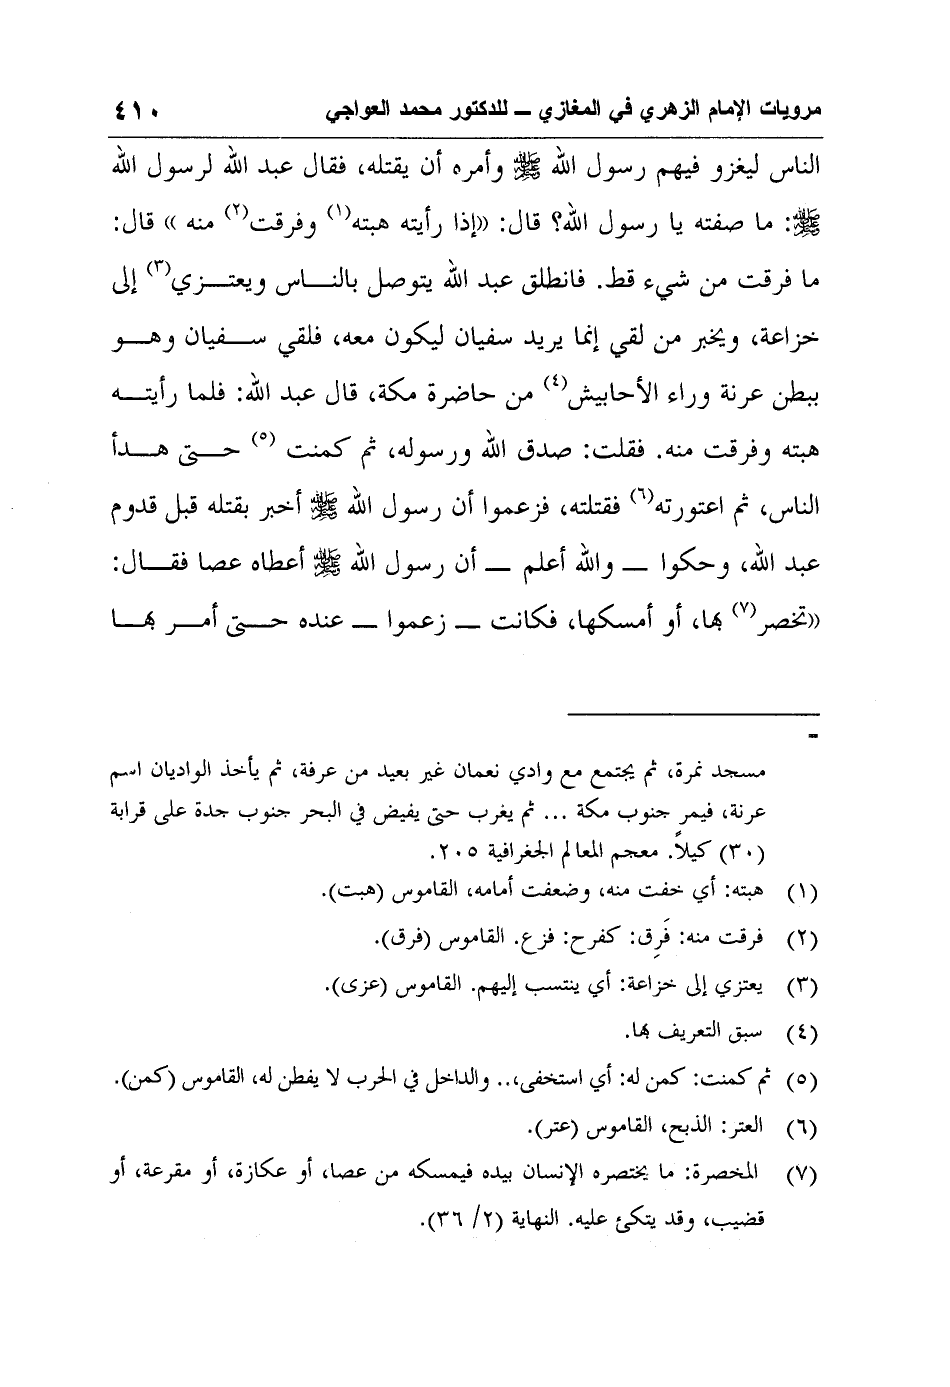 مرويات الإمام الزهري في المغازي ــ للدكتور محمد العواجي ٤١٠
الناس ليغزو فيهم رسول الله ﷺ وأمره أن يقتله، فقال عبد الله لرسول الله
ﷺ: ما صفته يا رسول الله؟ قال: «إذا رأيته هبته(١) وفرقت(٢) منه » قال:
ما فرقت من شيء قط. فانطلق عبد الله يتوصل بالنـــاس ويعتـــزي(٣) إلى
خزاعة، ويخبر من لقي إنما يريد سفيان ليكون معه، فلقي ســـفيان وهـــو
ببطن عرنة وراء الأحابيش(٤) من حاضرة مكة، قال عبد الله: فلما رأيتـــه
هبته وفرقت منه. فقلت: صدق الله ورسوله، ثم كمنت (٥) حـــتى هـــدأ
الناس، ثم اعتورته(٦) فقتلته، فزعموا أن رسول الله ﷺ أخبر بقتله قبل قدوم
عبد الله، وحكوا ــ والله أعلم ــ أن رسول الله ﷺ أعطاه عصا فقـــال:
«تخصر(٧) بها، أو أمسكها، فكانت ــ زعموا ــ عنده حـــتى أمـــر بهـــا
=
مسجد نمرة، ثم يجتمع مع وادي نعمان غير بعيد من عرفة، ثم يأخذ الواديان اسم
عرنة، فيمر جنوب مكة ... ثم يغرب حتى يفيض في البحر جنوب جدة على قرابة
(٣٠) كيلاً. معجم المعالم الجغرافية ٢٠٥.
(١) هبته: أي خفت منه، وضعفت أمامه، القاموس (هبت).
(٢) فرقت منه: فَرِق: كفرح: فزع. القاموس (فرق).
(٣) يعتزي إلى خزاعة: أي ينتسب إليهم. القاموس (عزى).
(٤) سبق التعريف بها.
(٥) ثم كمنت: كمن له: أي استخفى،.. والداخل في الحرب لا يفطن له، القاموس (كمن).
(٦) العتر: الذبح، القاموس (عتر).
(٧) المخصرة: ما يختصره الإنسان بيده فيمسكه من عصا، أو عكازة، أو مقرعة، أو
قضيب، وقد يتكئ عليه. النهاية (٢/ ٣٦).